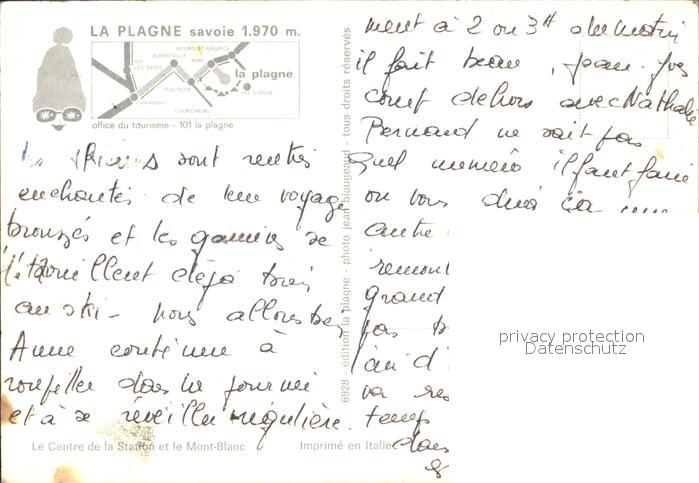 LA PLAGNE savoie 1.970 m.
BOURG ST MAURICE
ALBERTVILLE
AIME
AIX LES BAINS
la plagne
MOUTIERS
VAL D'ISERE
CHAMBERY
COURCHEVEL
office du tourisme - 101 la plagne
skieurs sont rentrés
enchantés de leur voyage
bronzés et les gamins se
débrouillent déjà bien
au ski - nous allons bien
Anne continue à
roupiller dans la journée
et à se réveiller régulière.
Le Centre de la Station et le Mont-Blanc
Imprimé en Italie
6928 - édition la plagne - photo jean biaugeaud - tous droits réservés
ment à 2 ou 3H du matin
il fait beau, Jean-Yves
court dehors avec Nathalie
Bernard ne sait pas
quel numéro il faut faire
on vous dira ça
autre
remont
grand
pas
va
temps
dans
privacy protection
Datenschutz